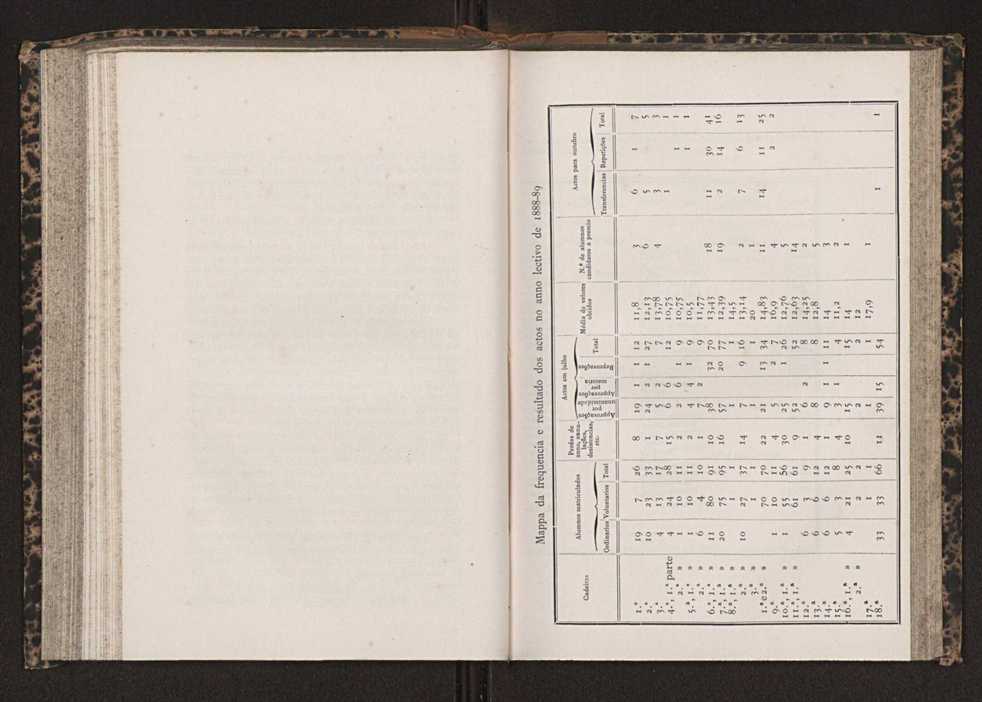 Mappa da frequencia e resultado dos actos no anno lectivo de 1888-89
Cadeiras | Alumnos matriculados | Perdas de anno, annullações, desistencias, etc. | Actos em julho | Média de valores obtidos | N.º de alumnos candidatos a premio | Actos para outubro
Ordinarios | Voluntarios | Total | Approvações por unanimidade | Approvações por maioria | Reprovações | Total | Transferencias | Repetições | Total
1.ª 19 7 26 8 10 1 1 12 11,8 3 6 1 7
2.ª 10 23 33 1 24 2 1 27 12,13 6 5 5
3.ª 4 13 17 7 5 2 7 13,78 4 3 3
4.ª, 1.ª parte 4 24 28 15 6 6 12 10,75 1 1
2.ª » 1 10 11 2 2 6 1 9 10,75 1 1
5.ª, 1.ª » 1 10 11 2 4 4 1 9 10,5 1 1
2.ª » 6 4 10 1 7 2 9 11,77
6.ª, 1.ª » 11 80 91 10 38 32 70 13,43 18 11 30 41
7.ª, 1.ª » 20 75 95 16 57 20 77 12,39 19 2 14 16
8.ª, 1.ª » 1 1 1 1 14,5
2.ª » 10 27 37 14 7 9 16 13,14 2 7 6 13
3.ª » 1 1 1 1 20 1
1.ª e 2.ª » 70 70 22 21 13 34 14,83 11 14 11 25
9.ª 1 10 11 4 5 2 7 16,9 4 2 2
10.ª, 1.ª » 1 55 56 30 25 1 26 12,76 5
11.ª, 1.ª » 61 61 9 52 52 12,63 14
12.ª 6 3 9 1 6 2 8 14,25 2
13.ª 6 6 12 4 8 8 12,8 5
14.ª 6 6 12 1 9 1 1 11 14 3
15.ª 5 3 8 4 3 1 4 11,2 2
16.ª, 1.ª » 4 21 25 10 15 15 14 1
2.ª » 2 2 2 2 12
17.ª 1 1 1 1 17,9 1
18.ª 33 33 66 11 39 15 54 1 1